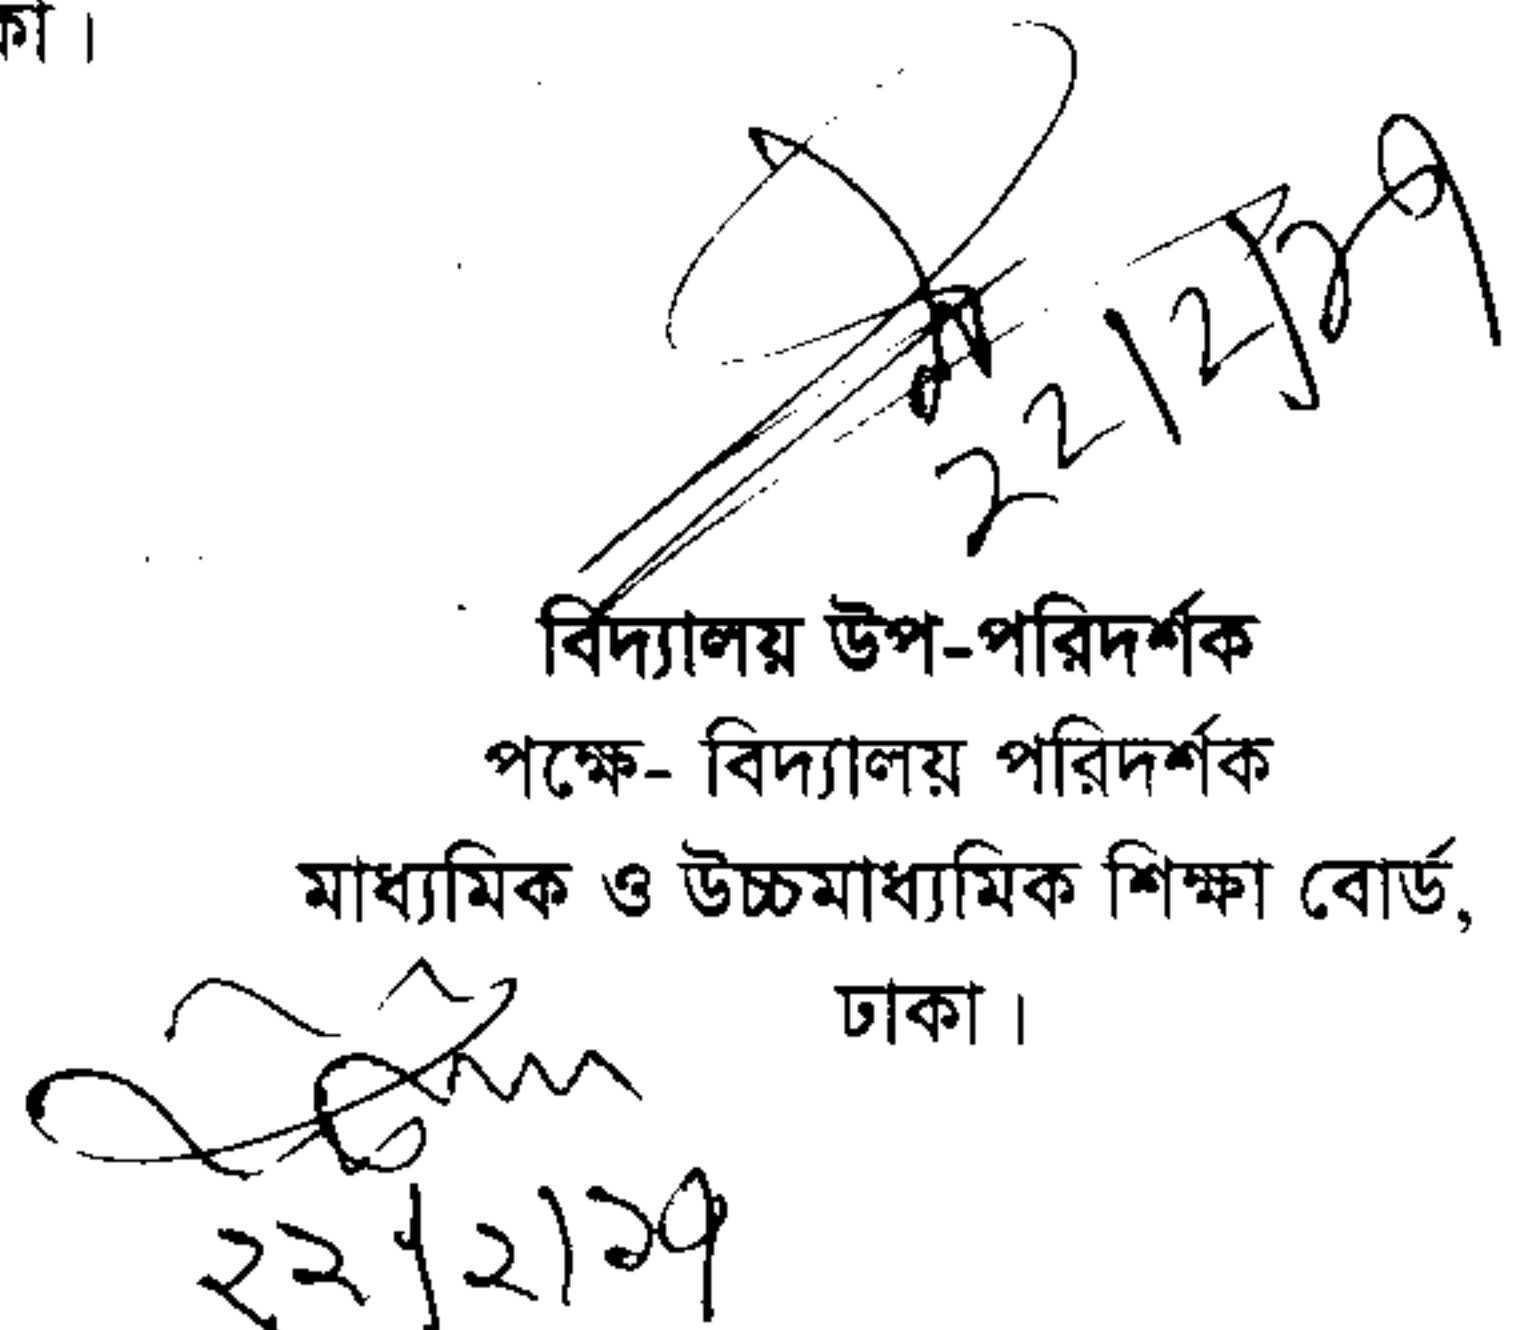 কা ।
২২/২/১৭
বিদ্যালয় উপ-পরিদর্শক
পক্ষে- বিদ্যালয় পরিদর্শক
মাধ্যমিক ও উচ্চমাধ্যমিক শিক্ষা বোর্ড,
ঢাকা ।
২২/২/১৭